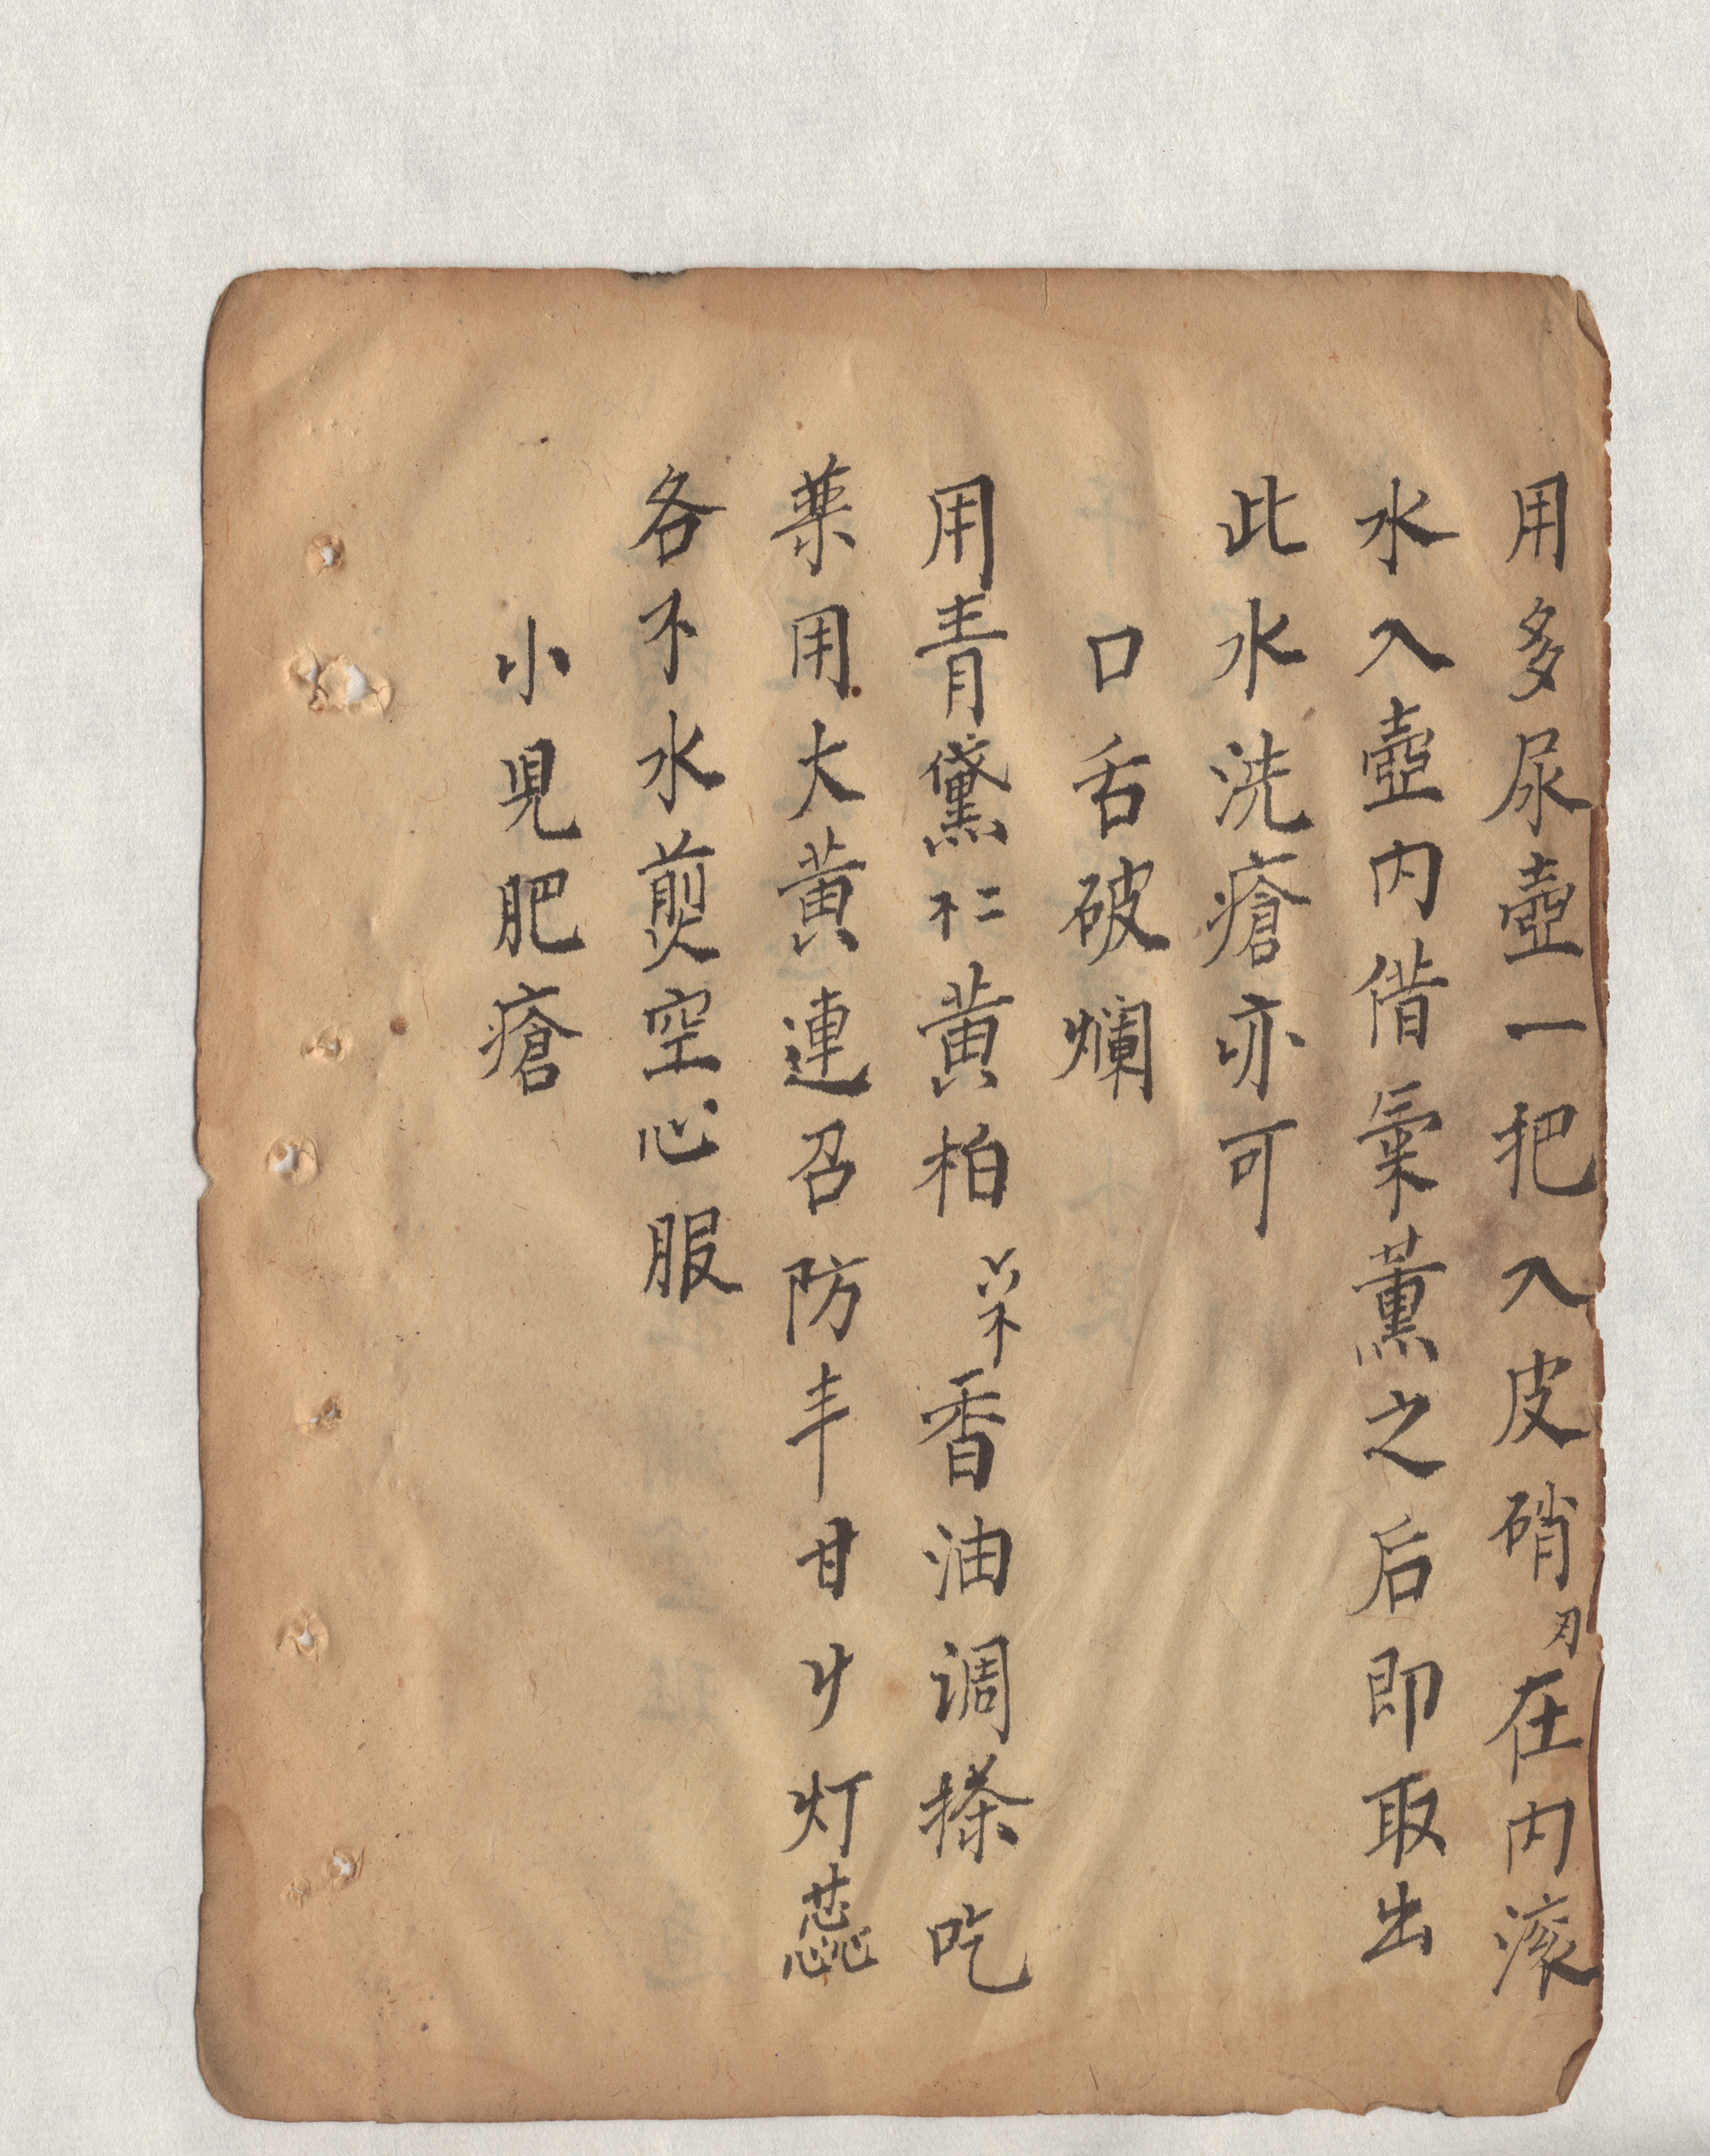 用多尿壺一把入皮硝刄在内滚
水入壺内借氣薰之后即取出
此水洗瘡亦可
口舌破爛
用青黛黄柏香油调搽吃
药用大黄連召防丰甘灯蕊
各不水煎空心服
小児肥瘡